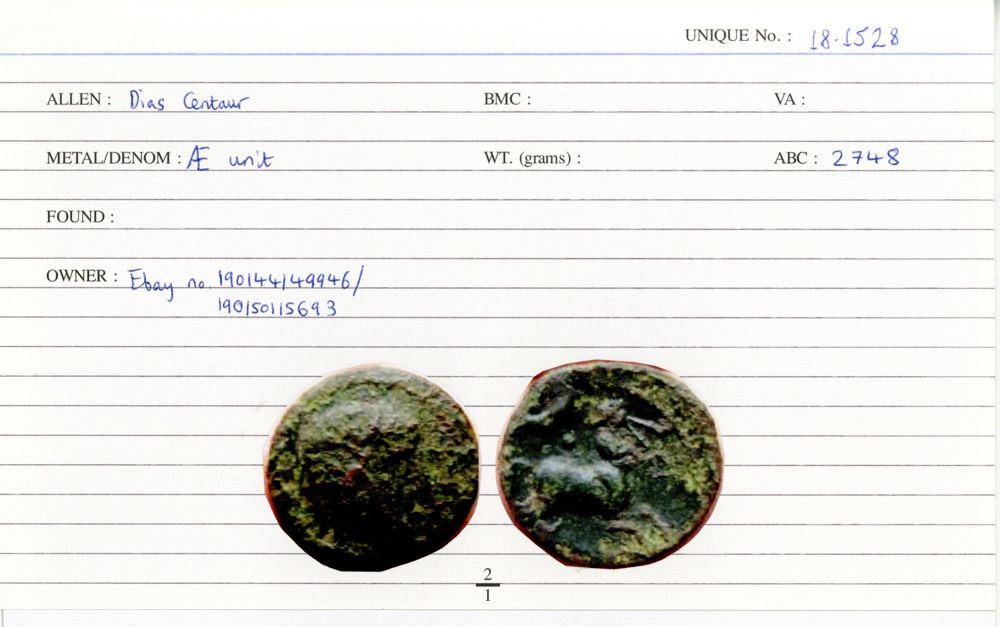 UNIQUE No. : 18.1528
ALLEN : Dias Centaur BMC : VA :
METAL/DENOM : Æ unit WT. (grams) : ABC : 2748
FOUND :
OWNER : Ebay no. 190144149946/
190150115693
2
1